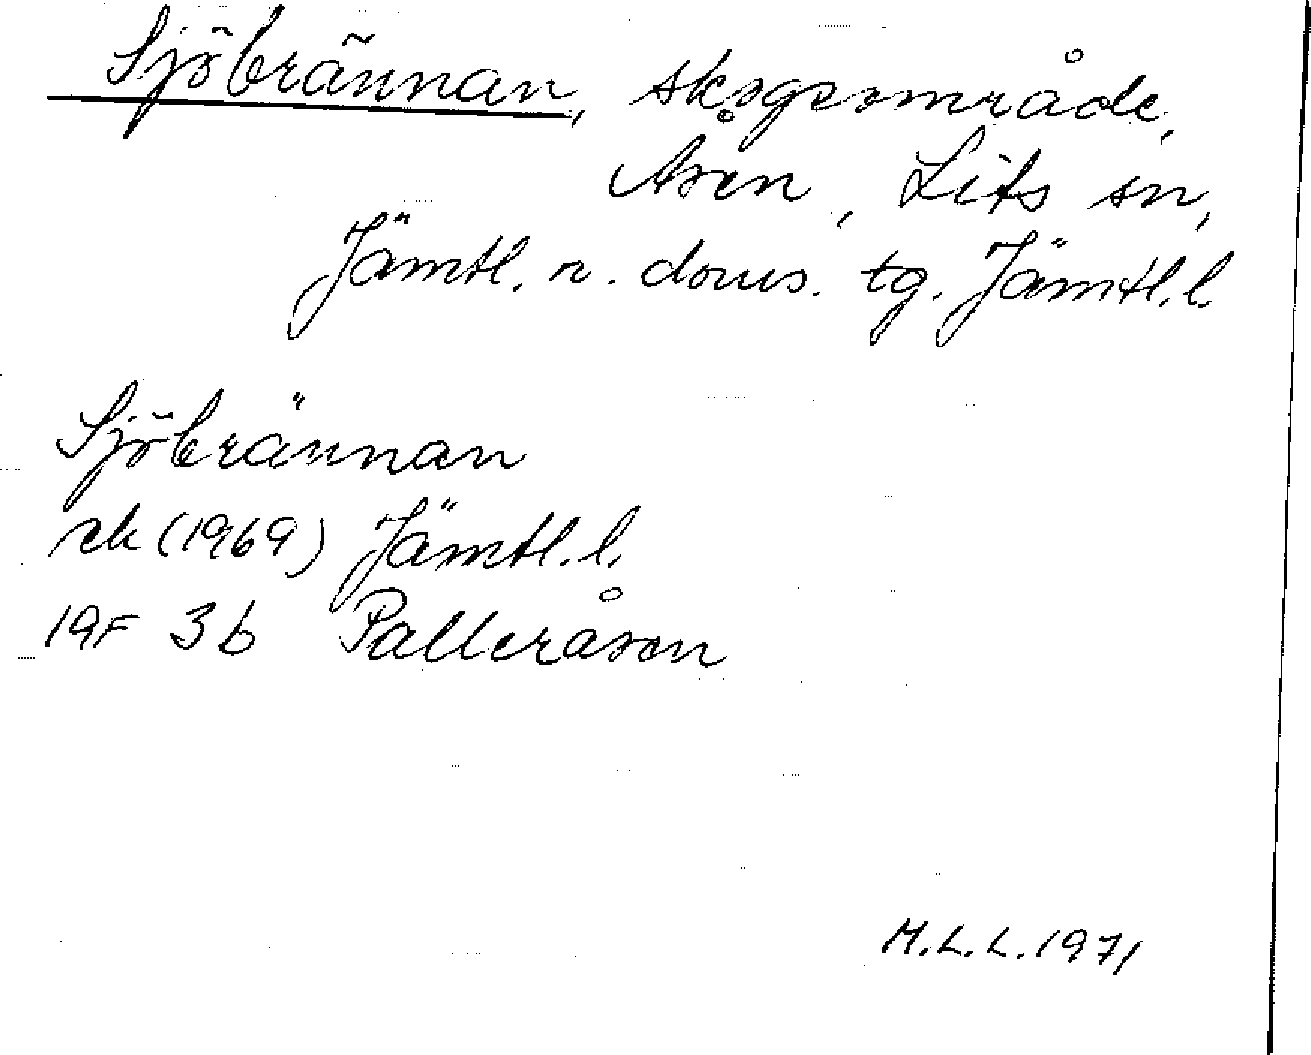 Sjöbrännan, skogsområde,
Åsen, Lits sn,
Jämtl. n. doms. tg. Jämtl. l.
Sjöbrännan
ek (1969) Jämtl. l.
19F 3b Palleråsen
M.L.L. 1971